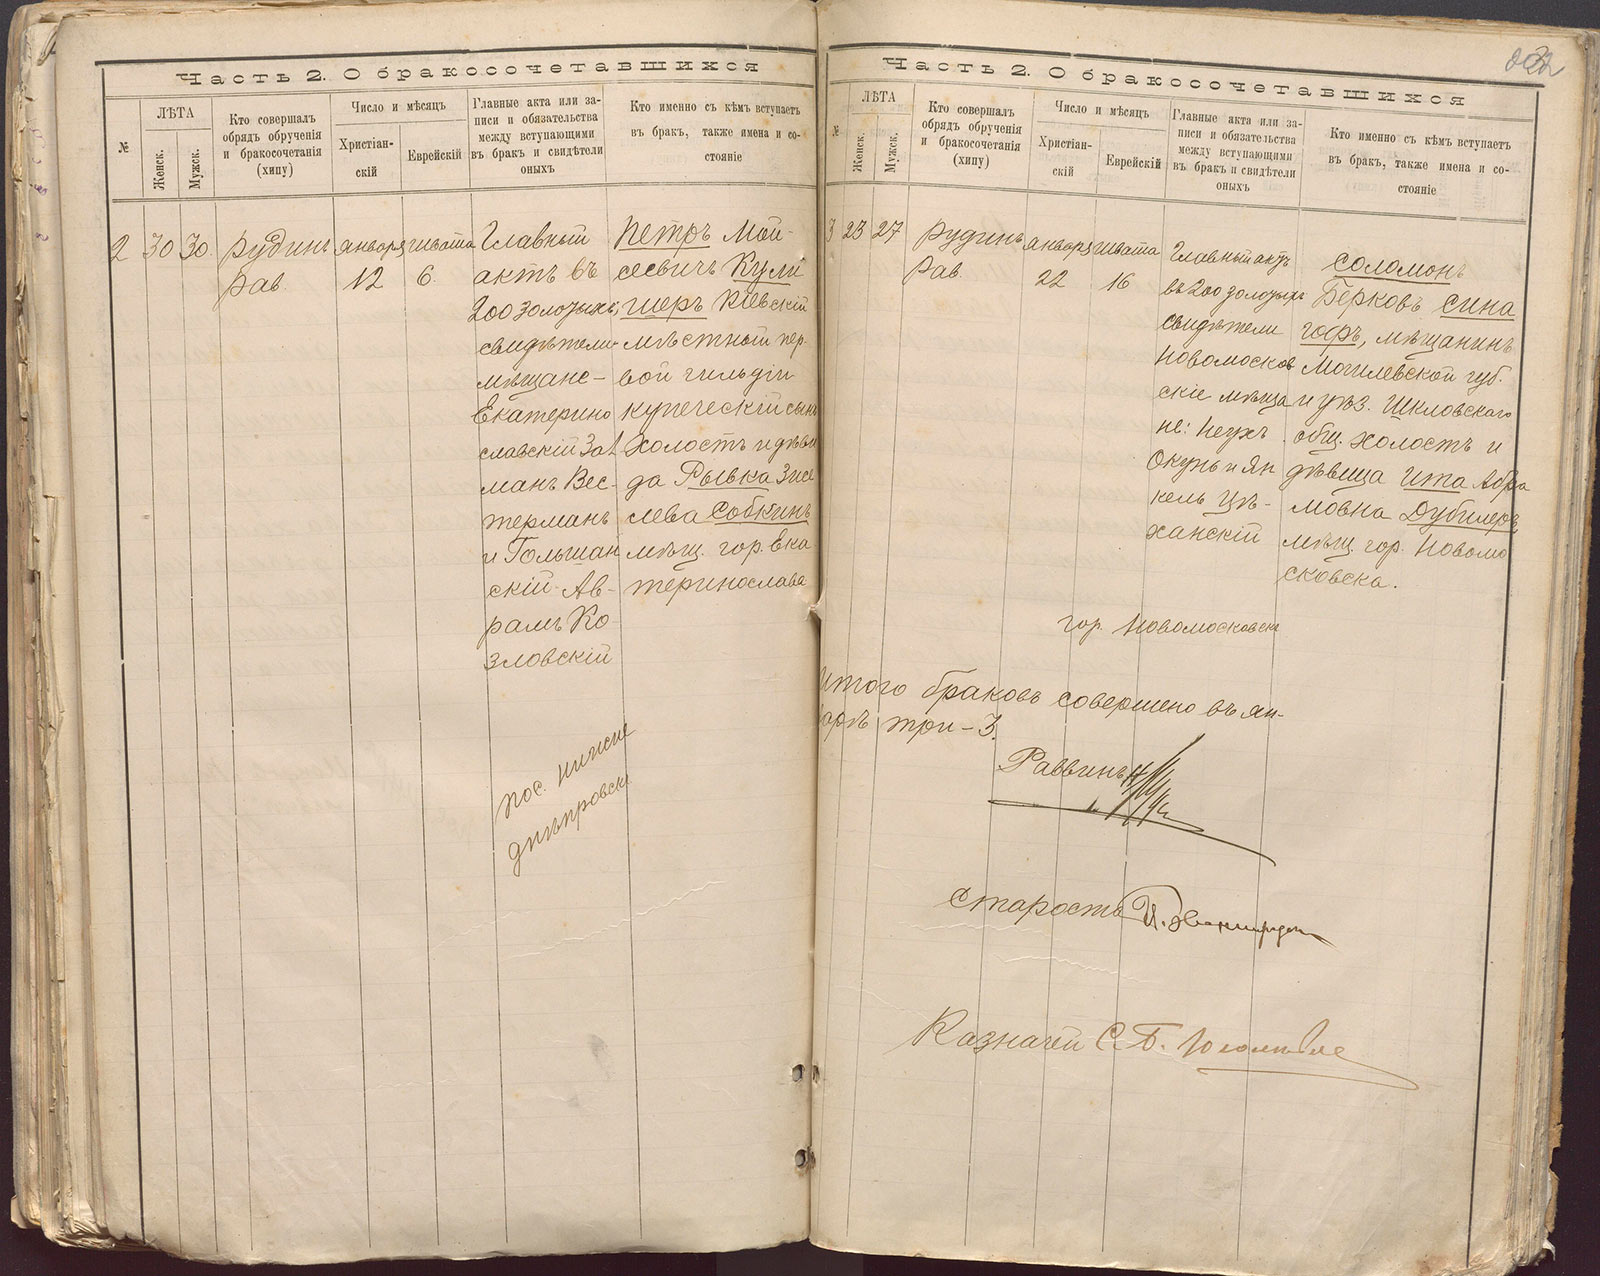 Часть 2. О бракосочетавшихся
№
ЛѢТА
Женск.
Мужск.
Кто совершалъ
обрядъ обрученія
и бракосочетанія
(хипу)
Число и мѣсяцъ
Христіан-
скій
Еврейскій
Главные акта или за-
писи и обязательства
между вступающими
въ бракъ и свидѣтели
оныхъ
Кто именно съ кѣмъ вступаетъ
въ бракъ, также имена и со-
стояніе
2
30
30
Рудинъ
Рав.
января
12
шевата
6
Главный
актъ въ
200 золотыхъ,
свидѣтели
мѣщане-
Екатерино
славскій Зал
манъ Вес-
терманъ
и Гольшан
скій Ав-
рамъ Ко
зловскій
Петръ Мои-
сеевичъ Кули
шеръ Кіевскій
мѣстной пер-
вой гильдіи
купеческій сынъ
холостъ и дѣви
да Рывка Зисе
лева Собкинъ
мѣщ. гор. Ека
теринослава
пос. Нижне
днѣпровск
Часть 2. О бракосочетавшихся
№
ЛѢТА
Женск.
Мужск.
Кто совершалъ
обрядъ обрученія
и бракосочетанія
(хипу)
Число и мѣсяцъ
Христіан-
скій
Еврейскій
Главные акта или за-
писи и обязательства
между вступающими
въ бракъ и свидѣтели
оныхъ
Кто именно съ кѣмъ вступаетъ
въ бракъ, также имена и со-
стояніе
3
23
27
Рудинъ
Рав.
января
22
шевата
16
Главный актъ
въ 200 золотыхъ
свидѣтели
Новомосков
скіе мѣща
не: Неухъ
Окунь и Ян
кель Цѣ-
ханскій
Соломонъ
Берковъ Сина
гофъ, мѣщанинъ
Могилевской губ.
и уѣз. Шкловскаго
общ. холостъ и
дѣвица Ита Абра
мовна Дубилеръ
мѣщ. гор. Новомо
сковска.
гор. Новомосковскъ
Итого браковъ совершено въ ян-
варѣ три-3.
Раввинъ
Староста
Казначей С. Б.